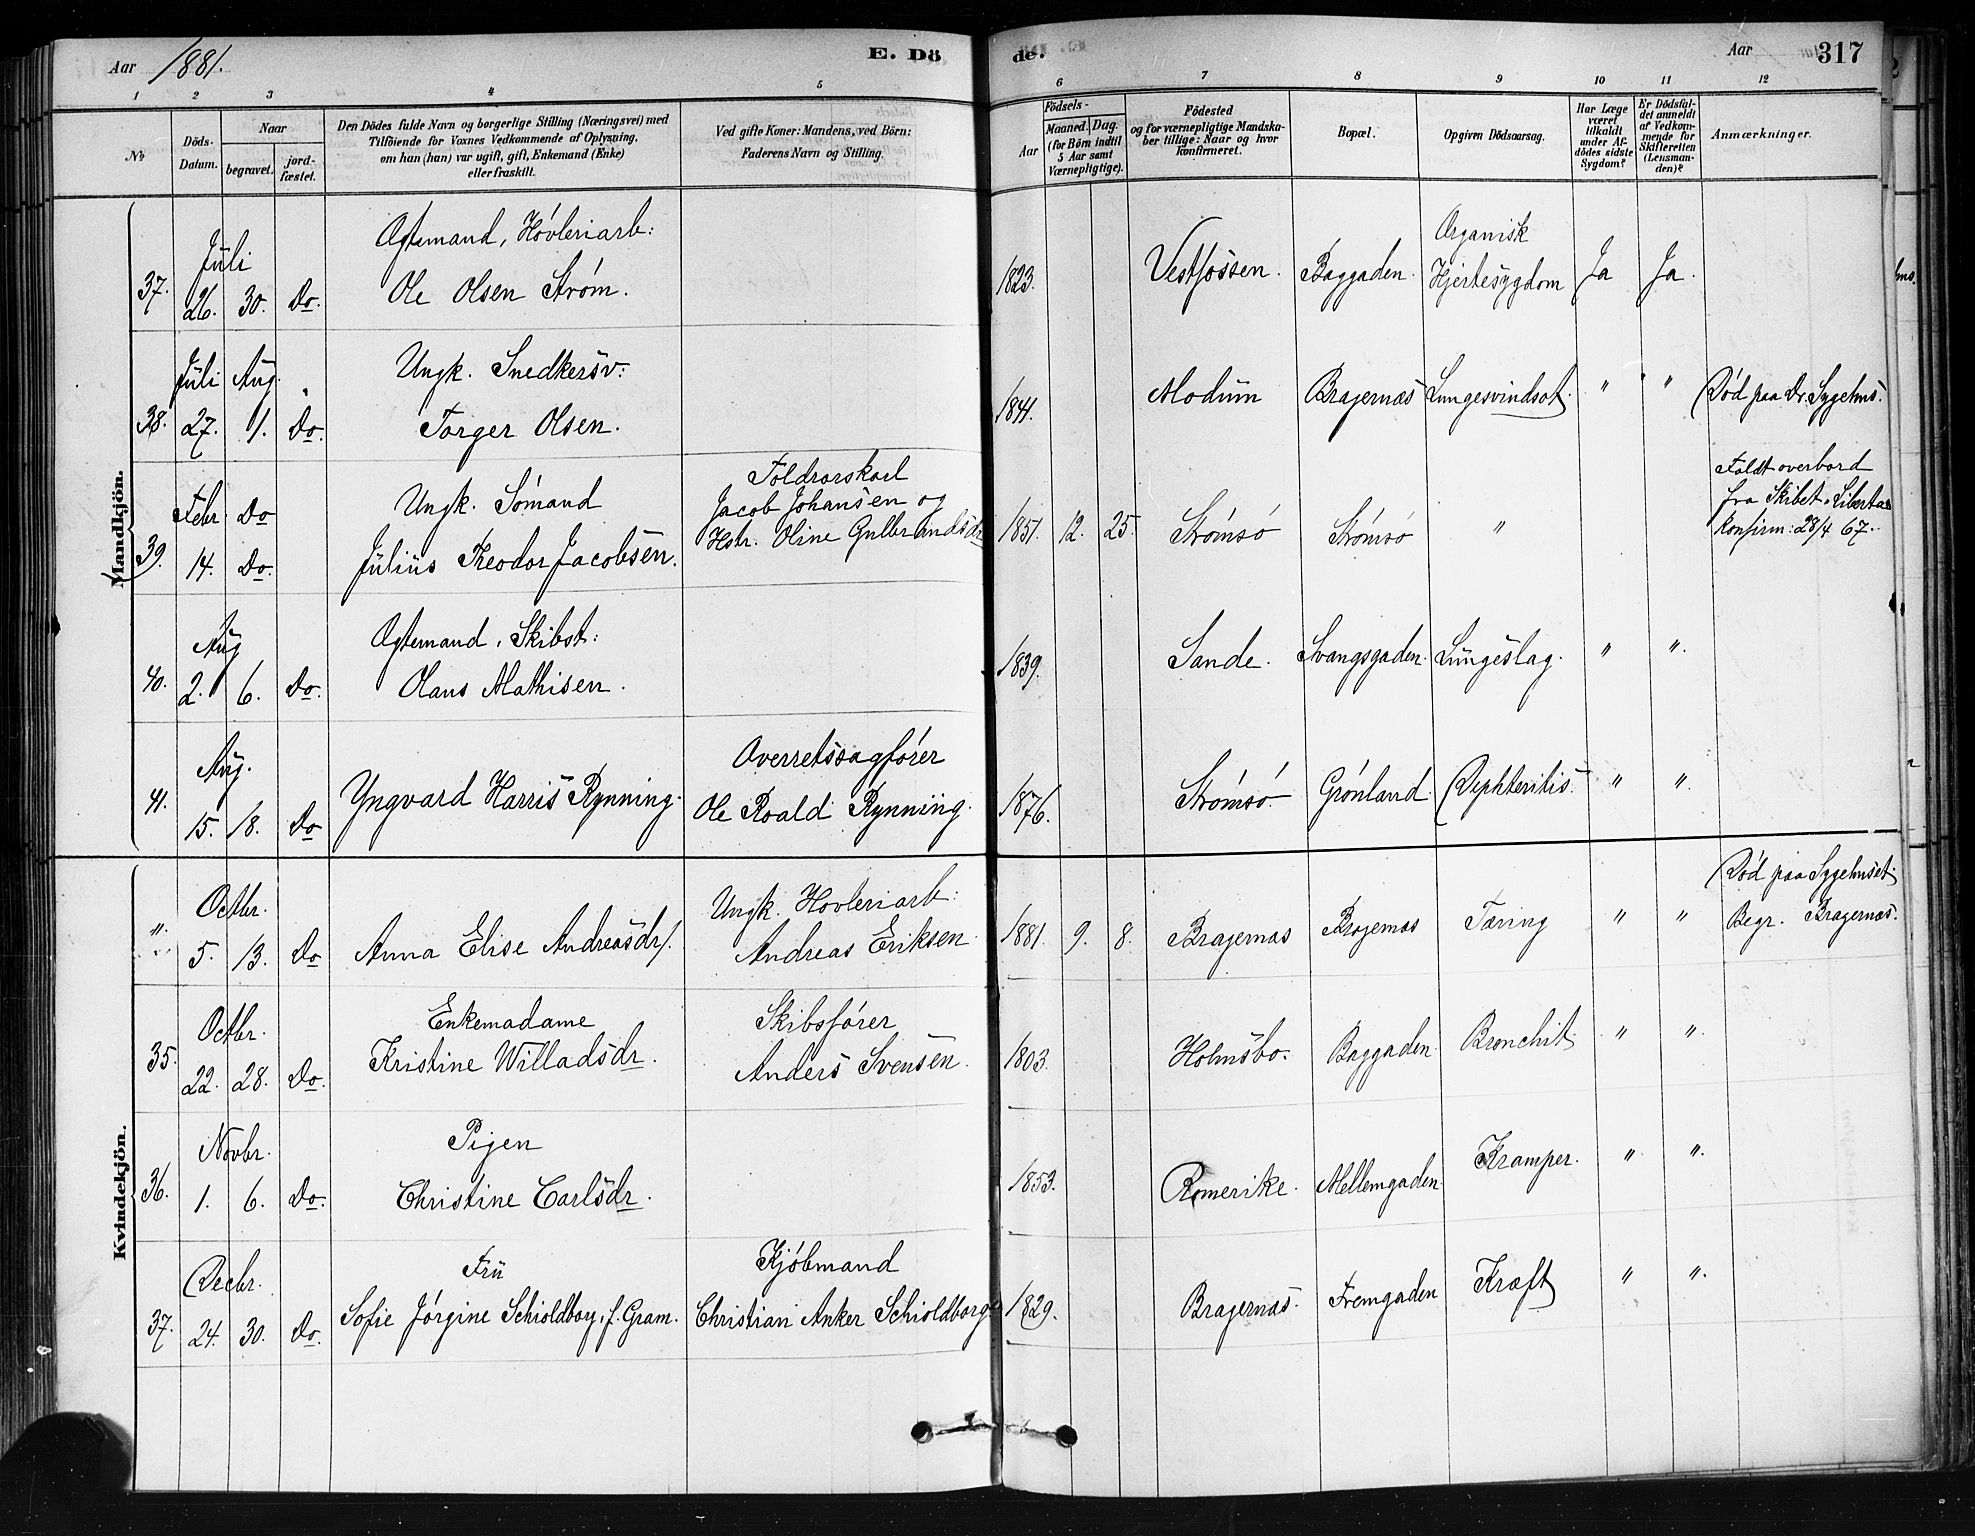 Aar 1881. E. Dö de. Aar 317
1 2 3 4 5 6 7 8 9 10 11 12
No
Döds-Datum.
Naar
begravet.
jordfæstet.
Den Dödes fulde Navn og borgerlige Stilling (Næringsvei) med
Tilföiende for Voxnes Vedkommende af Oplysning,
om han (hun) var ugift, gift, Enkemand (Enke)
eller fraskilt.
Ved gifte Koner: Mandens, ved Börn:
Faderens Navn og Stilling.
Födsels-
Aar
Maaned. Dag.
(for Börn indtil
5 Aar samt
Værnepligtige).
Födested
og for værnepligtige Mandskaber
tillige: Naar og hvor
konfirmeret.
Bopæl.
Opgiven Dödsaarsag.
Har Læge
været
tilkaldt
under Afdödes
sidste
Sygdom?
Er Dödsfaldet
anmeldt
af Vedkommende
for
Skifteretten
(Lensmanden)?
Anmærkninger.
Mandkjön.
Juli
37. 26. 30. Do.
Ogtemand, Hóvleriarb:
Ole Olsen Stróm.
1823. Vestfossen. Baggaden. Organisk
Hjertesygdom Ja Ja.
Juli Aug.
38. 27. 1. Do.
Ungk. Snedkersv:
Torger Olsen.
1841. Modum Bragernæs Lungesvindsot. " " Dód paa Dr. Sygehus.
Febr. Do
39. 14. Do.
Ungk. Sómand
Julius Theodor Jacobsen.
Toldrorskarl
Jacob Johansen og
Hstr. Oline Gulbrandsdr
1851. 12. 25. Strómsó Strómsó "
Faldt overbord
fra Skibet "Liberta
Konfirm: 28/4 67.
Aug
40. 2. 6. Do.
Ogtemand, Skibst:
Olaus Mathisen.
1839. Sande. Svangsgaden. Lungeslag. " "
Aug.
41. 15. 18. Do
Yngvard Harris Rynning.
Overretssagfórer
Ole Roald Rynning.
1876. Strómsó. Grónland. Dephteritis. " "
Kvindekjön.
Octbr.
" 5. 13. Do
Anna Elise Andreasdr.
Ungk. Hovleriarb:
Andreas Eriksen
1881. 9. 8. Bragernas Bragernas Tæring " "
Dód paa Sygehuset.
Begr. Bragernæs.
Octbr.
35. 22. 28. Do.
Enkemadame
Kristine Willadsdr.
Skibsfórer
Anders Svensen.
1803. Holmsbo. Baggaden Bronchit " "
Novbr.
36. 1. 6. Do.
Pigen
Christine Carlsdr.
1853. Romerike. Mellemgaden Kramper. " "
Decbr.
37. 24. 30. Do.
Fru
Sofie Jórgine Schioldborg, f. Gram.
Kjóbmand
Christian Anker Schioldborg
1829. Bragernæs. Fremgaden Kræft " "